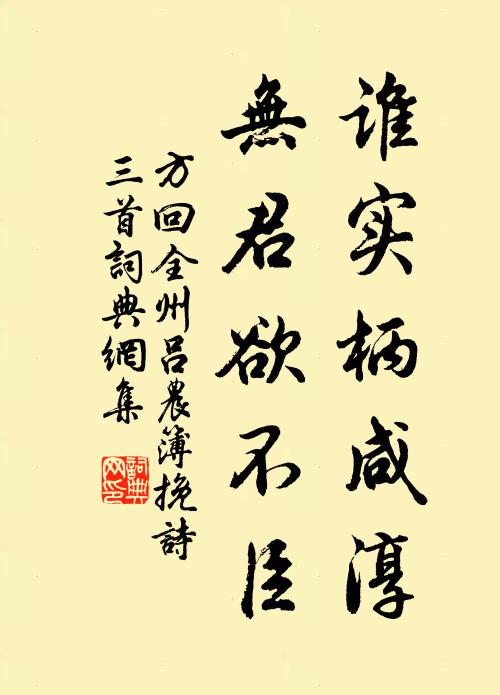 谁实柄咸淳
無君欲不臣
方回全州吕農簿挽詩
三首詞典網集
詞典网印